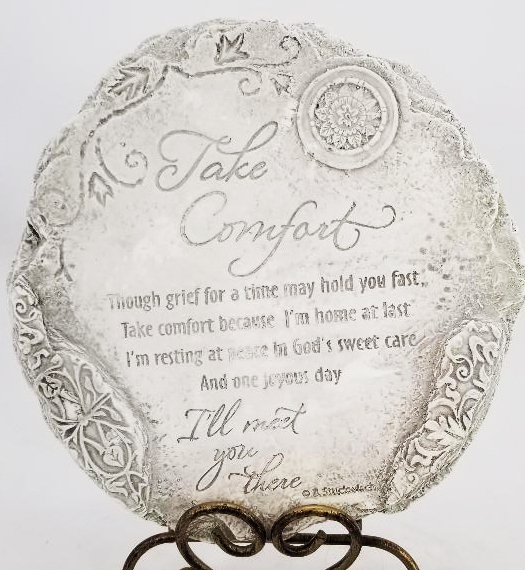 Take
Comfort
Though grief for a time may hold you fast,
Take comfort because I'm home at last
I'm resting at peace in God's sweet care
And one joyous day
I'll meet
you
there
©